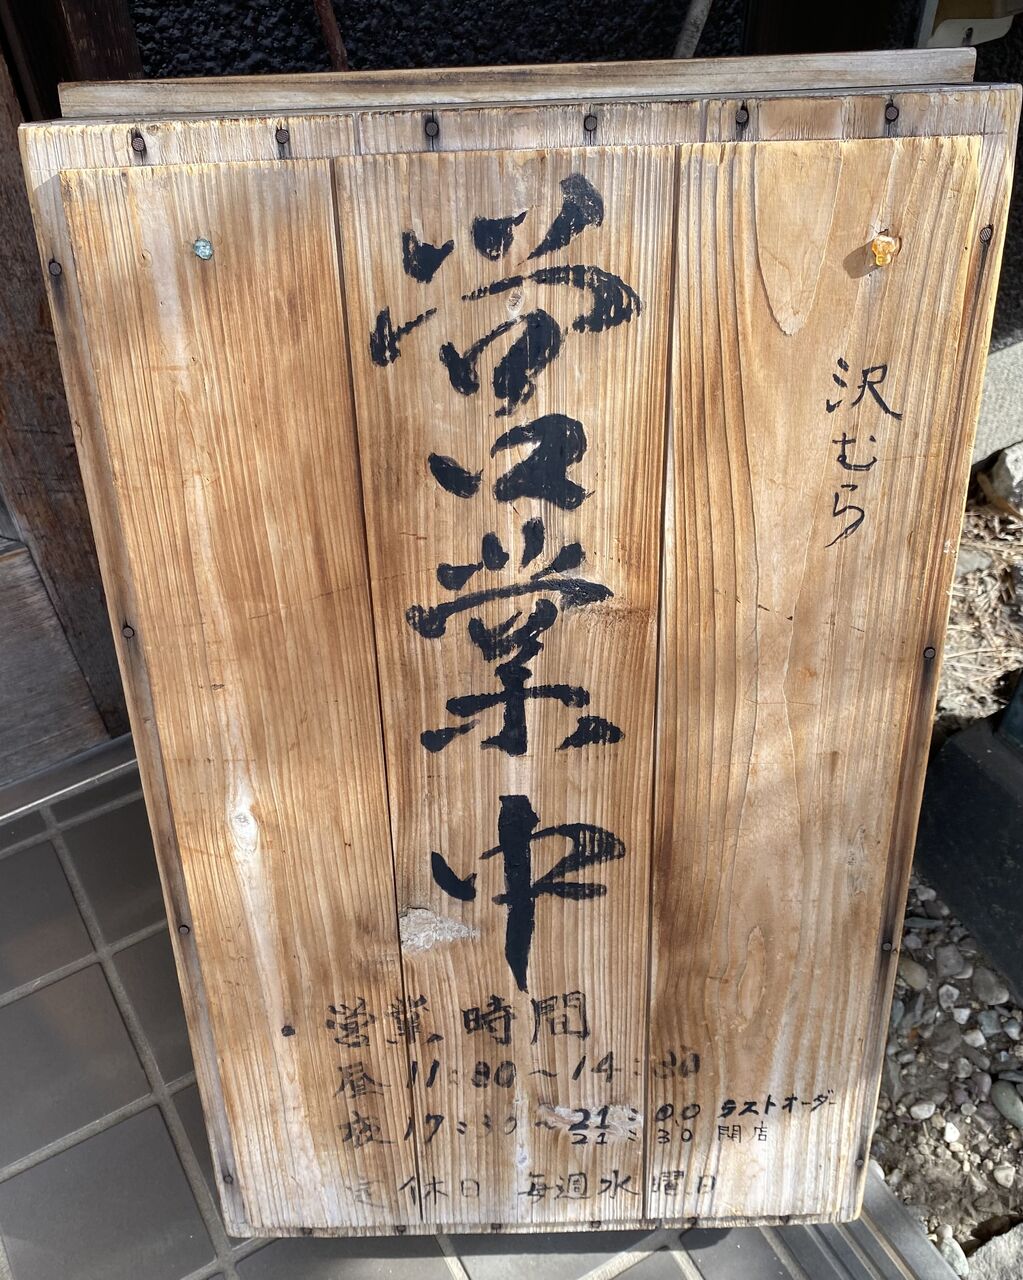 沢むら
営業中
営業時間
昼 11:30～14:30
夜 17:30～21:00 ラストオーダー
21:30 閉店
定休日 毎週水曜日